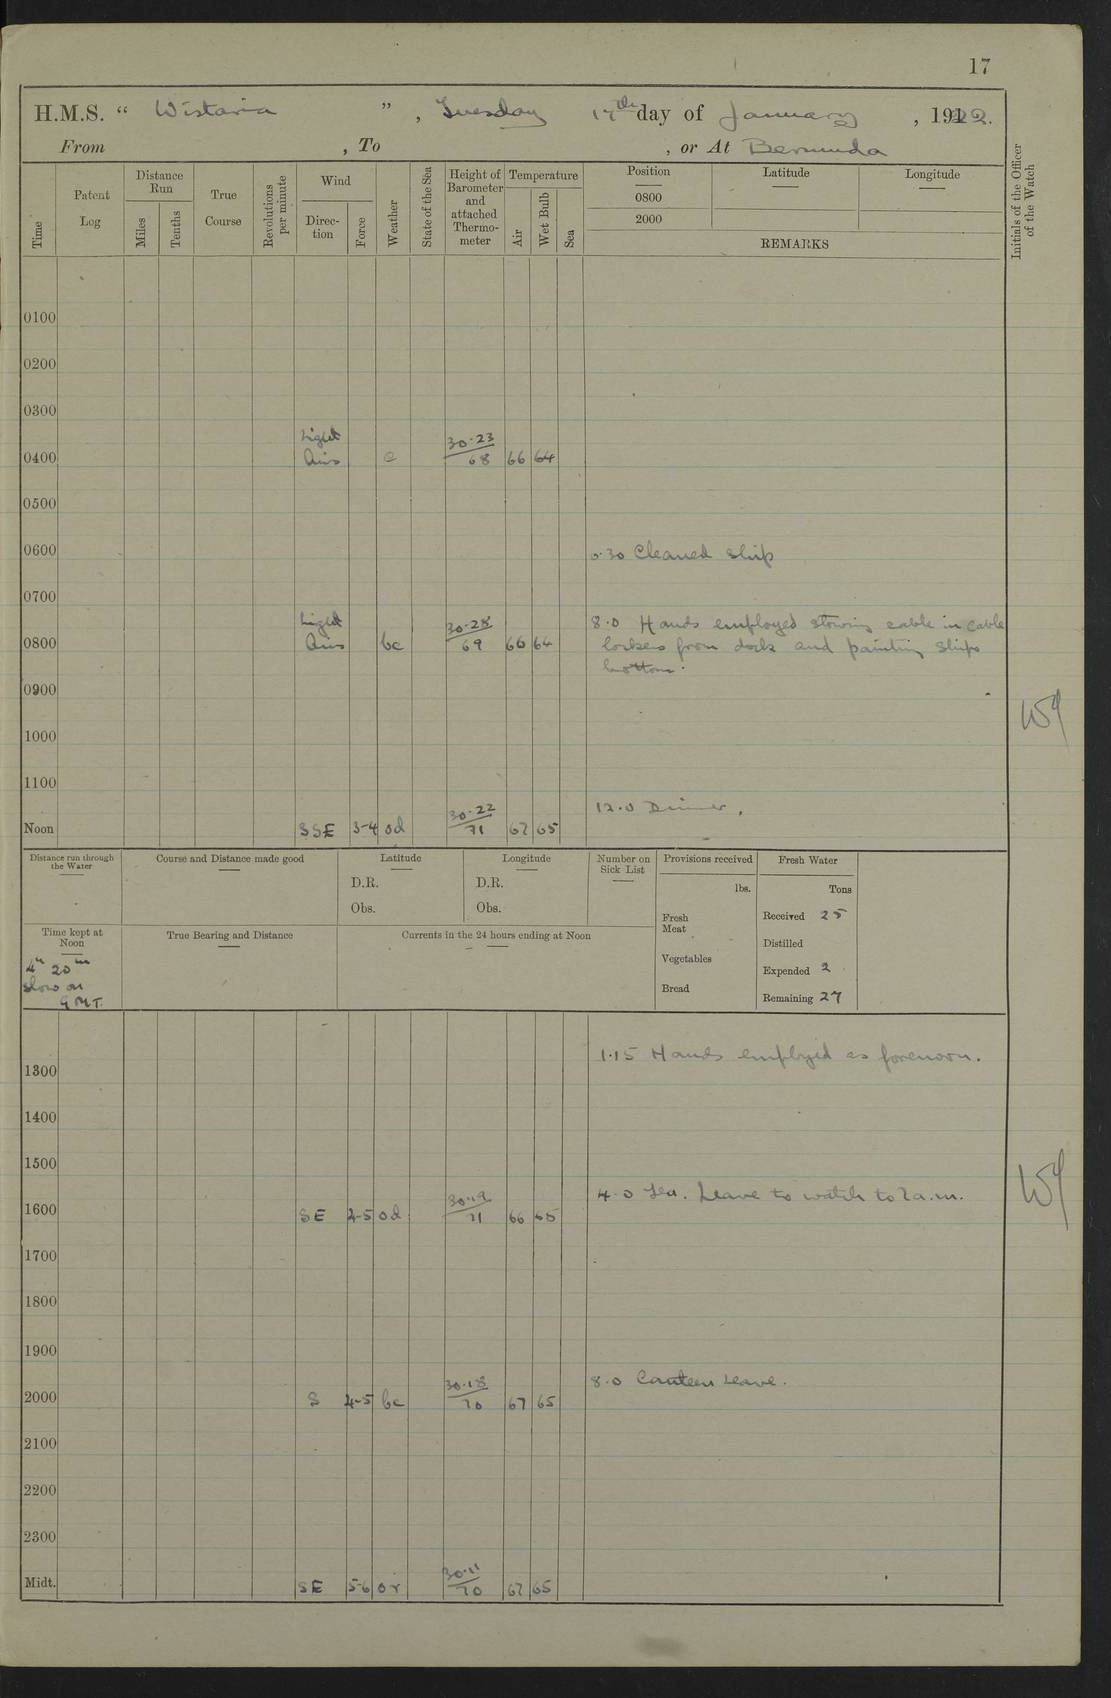 17
H.M.S. " Wistaria ", Tuesday 17th day of January, 1922.
From , To , or At Bermuda
Time
Patent Log
Distance Run
Miles
Tenths
True Course
Revolutions per minute
Wind
Direction
Force
Weather
State of the Sea
Height of Barometer and attached Thermometer
Temperature
Air
Wet Bulb
Sea
Position
0800
2000
Latitude
Longitude
REMARKS
Initials of the Officer of the Watch
0100
0200
0300
0400 Light Airs c 30.23 68 66 64
0500
0600
6.30 Cleaned ship
0700
0800 Light Airs bc 30.28 69 66 64
8.0 Hands employed stowing cable in cable
lockers from dock and painting ships
bottom.
0900
1000
1100
12.0 Dinner.
Noon SSE 3-4 od 30.22 71 67 65
Distance run through the Water
Course and Distance made good
Latitude
D.R.
Obs.
Longitude
D.R.
Obs.
Number on Sick List
Provisions received
lbs.
Fresh Meat
Vegetables
Bread
Fresh Water
Tons
Received 25
Distilled
Expended 2
Remaining 27
Time kept at Noon
4h 20m
slow on
G.M.T.
True Bearing and Distance
Currents in the 24 hours ending at Noon
1.15 Hands employed as forenoon.
1300
1400
1500
4.0 Tea. Leave to watch to 7 a.m.
1600 SE 4-5 od 30.19 71 66 65
1700
1800
1900
8.0 Canteen Leave.
2000 S 4-5 bc 30.18 70 67 65
2100
2200
2300
Midt. SE 5-6 or 30.11 70 67 65